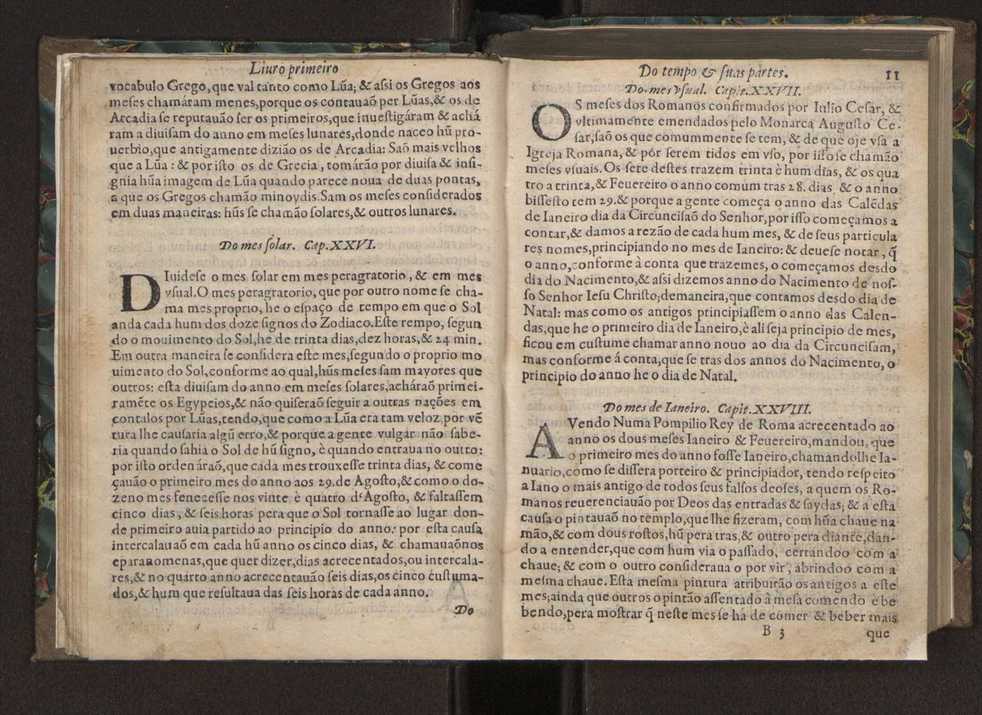 Liuro primeiro
vocabulo Grego, que val tanto como Lũa; & assi os Gregos aos
meses chamáram menes, porque os contauaõ per Lũas, & os de
Arcadia se reputauão ser os primeiros, que inuestigáram & achá
ram a diuisam do anno em meses lunares, donde naceo hũ pro-
uerbio, que antigamente dizião os de Arcadia: Saõ mais velhos
que a Lũa: & por isto os de Grecia, tomárão por diuisa & insi-
gnia hũa imagem de Lũa quando parece noua de duas pontas,
a que os Gregos chamão minoydis. Sam os meses considerados
em duas maneiras: hũs se chamão solares, & outros lunares.
Do mes solar. Cap. XXVI.
DIuidese o mes solar em mes peragratorio, & em mes
vsual. O mes peragratorio, que por outro nome se cha-
ma mes proprio, he o espaço de tempo em que o Sol
anda cada hum dos doze signos do Zodiaco. Este tempo, segun
do o mouimento do Sol, he de trinta dias, dez horas, & 24 min.
Em outra maneira se considera este mes, segundo o proprio mo
uimento do Sol, conforme ao qual, hũs meses sam mayores que
outros: esta diuisam do anno em meses solares, acháraõ primei-
ramẽte os Egypcios, & não quiserão seguir a outras nações em
contalos por Lũas, tendo, que como a Lũa era tam veloz, por vẽ
tura lhe causaria algũ erro, & porque a gente vulgar não sabe-
ria quando sahia o Sol de hũ signo, è quando entraua no outro:
por isto ordenáraõ, que cada mes trouxesse trinta dias, & come
çauão o primeiro mes do anno aos 29. de Agosto, & como o do-
zeno mes fenecesse nos vinte è quatro d'Agosto, & faltassem
cinco dias, & seis horas pera que o Sol tornasse ao lugar don-
de primeiro auia partido ao principio do anno: por esta causa
intercalauaõ em cada hũ anno os cinco dias, & chamauaõnos
eparanomenas, que quer dizer, dias acrecentados, ou intercala-
res, & no quarto anno acrecentauão seis dias, os cinco custuma-
dos, & hum que resultaua das seis horas de cada anno.
Do
Do tempo & suas partes. 11
Do mes vsual. Capit. XXVII.
OS meses dos Romanos confirmados por Iulio Cesar, &
vltimamente emendados pelo Monarca Augusto Ce-
sar, saõ os que commummente se tem, & de que oje vsa a
Igreja Romana, & pór serem tidos em vso, por isso se chamão
meses vsuais. Os sete destes trazem trinta è hum dias, & os qua
tro a trinta, & Feuereiro o anno comum tras 28. dias & o anno
bissesto tem 29. & porque a gente começa o anno das Calẽdas
de Ianeiro dia da Circuncisaõ do Senhor, por isso começamos a
contar, & damos a rezão de cada hum mes, & de seus particula
res nomes, principiando no mes de Ianeiro: & deuese notar, q̃
o anno, conforme à conta que trazemos, o começamos desdo
dia do Nacimento, & assi dizemos anno do Nacimento de nos-
so Senhor Iesu Christo; demaneira, que contamos desdo dia de
Natal: mas como os antigos principiassem o anno das Calen-
das, que he o primeiro dia de Ianeiro, è ali seja principio de mes,
ficou em custume chamar anno nouo ao dia da Circuncisam,
mas conforme á conta, que se tras dos annos do Nacimento, o
principio do anno he o dia de Natal.
Do mes de Ianeiro. Capit. XXVIII.
AVendo Numa Pompilio Rey de Roma acrecentado ao
anno os dous meses Ianeiro & Feuereiro, mandou, que
o primeiro mes do anno fosse Ianeiro, chamandolhe Ia-
nuario, como se dissera porteiro & principiador, tendo respeito
a Iano o mais antigo de todos seus falsos deoses, a quem os Ro-
manos reuerenciauão por Deos das entradas & saydas; & a esta
causa o pintauaõ no templo, que lhe fizeram, com hũa chaue na
mão, & com dous rostos, hũ pera tras, & outro pera diante, dan-
do a entender, que com hum via o passado, cerrando com a
chaue; & com o outro consideraua o por vir, abrindoo com a
mesma chaue. Esta mesma pintura atribuirão os antigos a este
mes; ainda que outros o pintão assentado â mesa comendo è be
bendo, pera mostrar q̃ neste mes se há de comer & beber mais
B 3 que